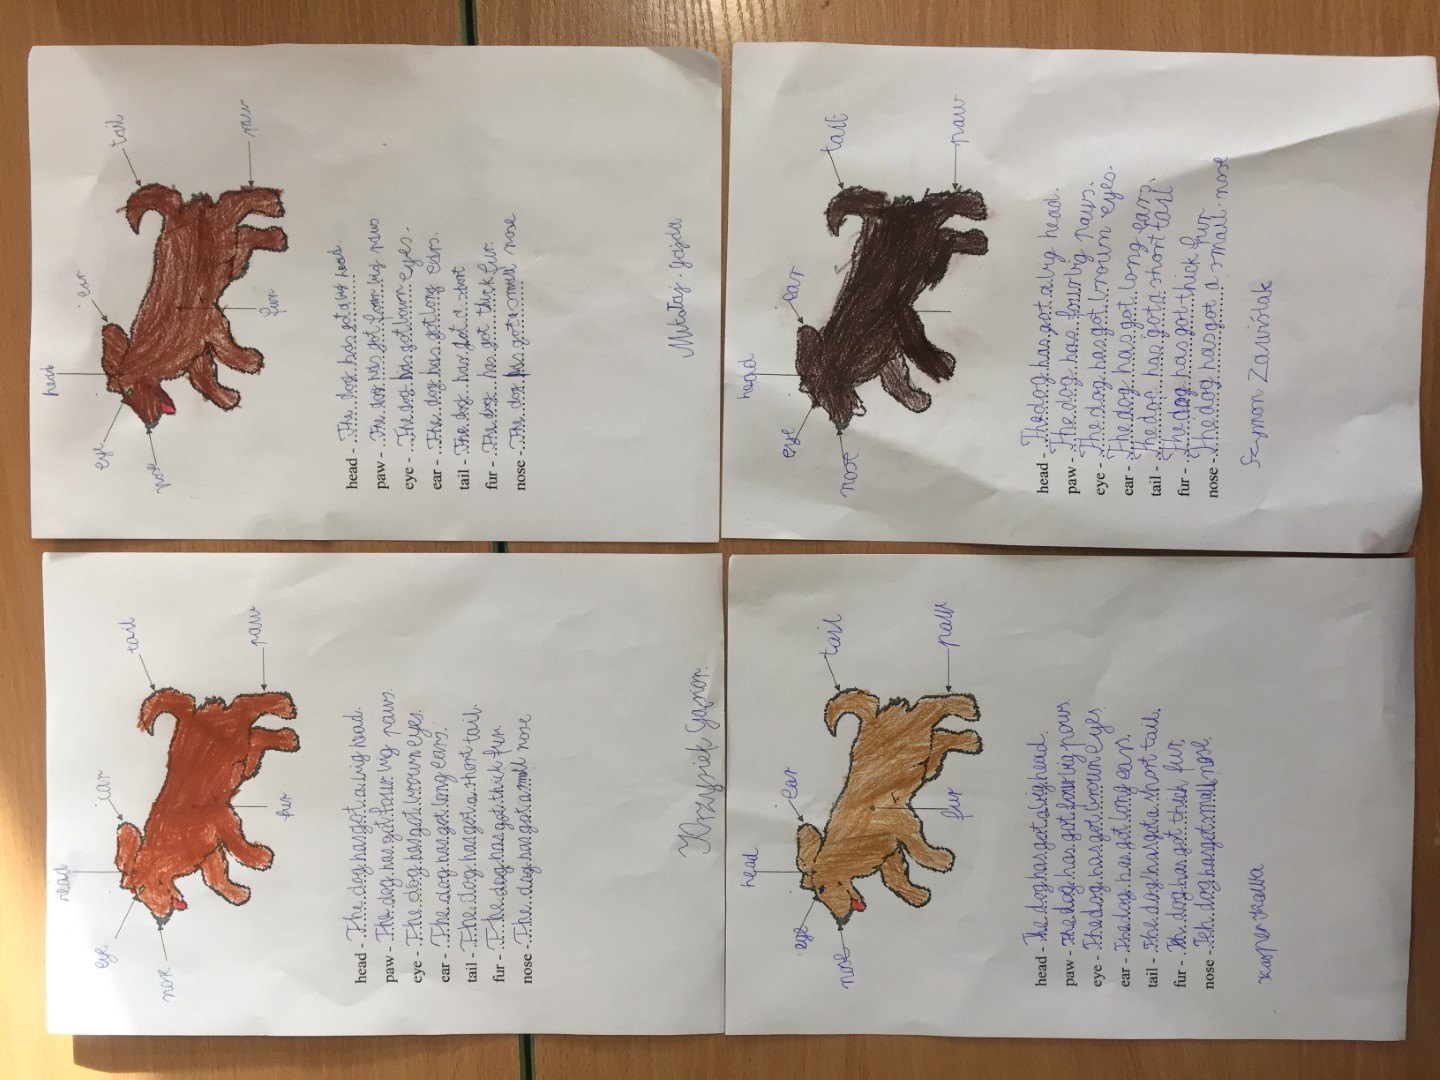 head
ear
tail
eye
nose
fur
paw
head - The dog has got a big head.
paw - The dog has got four big paws
eye - The dog has got brown eyes.
ear - The dog has got long ears.
tail - The dog has got a short
fur - The dog has got thick fur.
nose - The dog has got a small nose
Mikołaj Gajda
head
ear
tail
eye
nose
paw
head - The dog has got a big head.
paw - The dog has four big paws.
eye - The dog has got brown eyes.
ear - The dog has got long ears.
tail - The dog has got a short tail
fur - The dog has got thick fur
nose - The dog has got a small nose
Szymon Zawiślak
head
ear
tail
eye
nose
fur
paw
head - The dog has got a big head.
paw - The dog has got four big paws.
eye - The dog has got brown eyes.
ear - The dog has got long ears.
tail - The dog has got a short tail.
fur - The dog has got thick fur.
nose - The dog has got a small nose
Krzysiek
head
ear
tail
eye
nose
fur
paw
head - The dog has got a big head.
paw - The dog has got four big paws
eye - The dog has got brown eyes
ear - The dog has got long ears.
tail - The dog has got a short tail.
fur - The dog has got thick fur.
nose - Teh dog has got small nose.